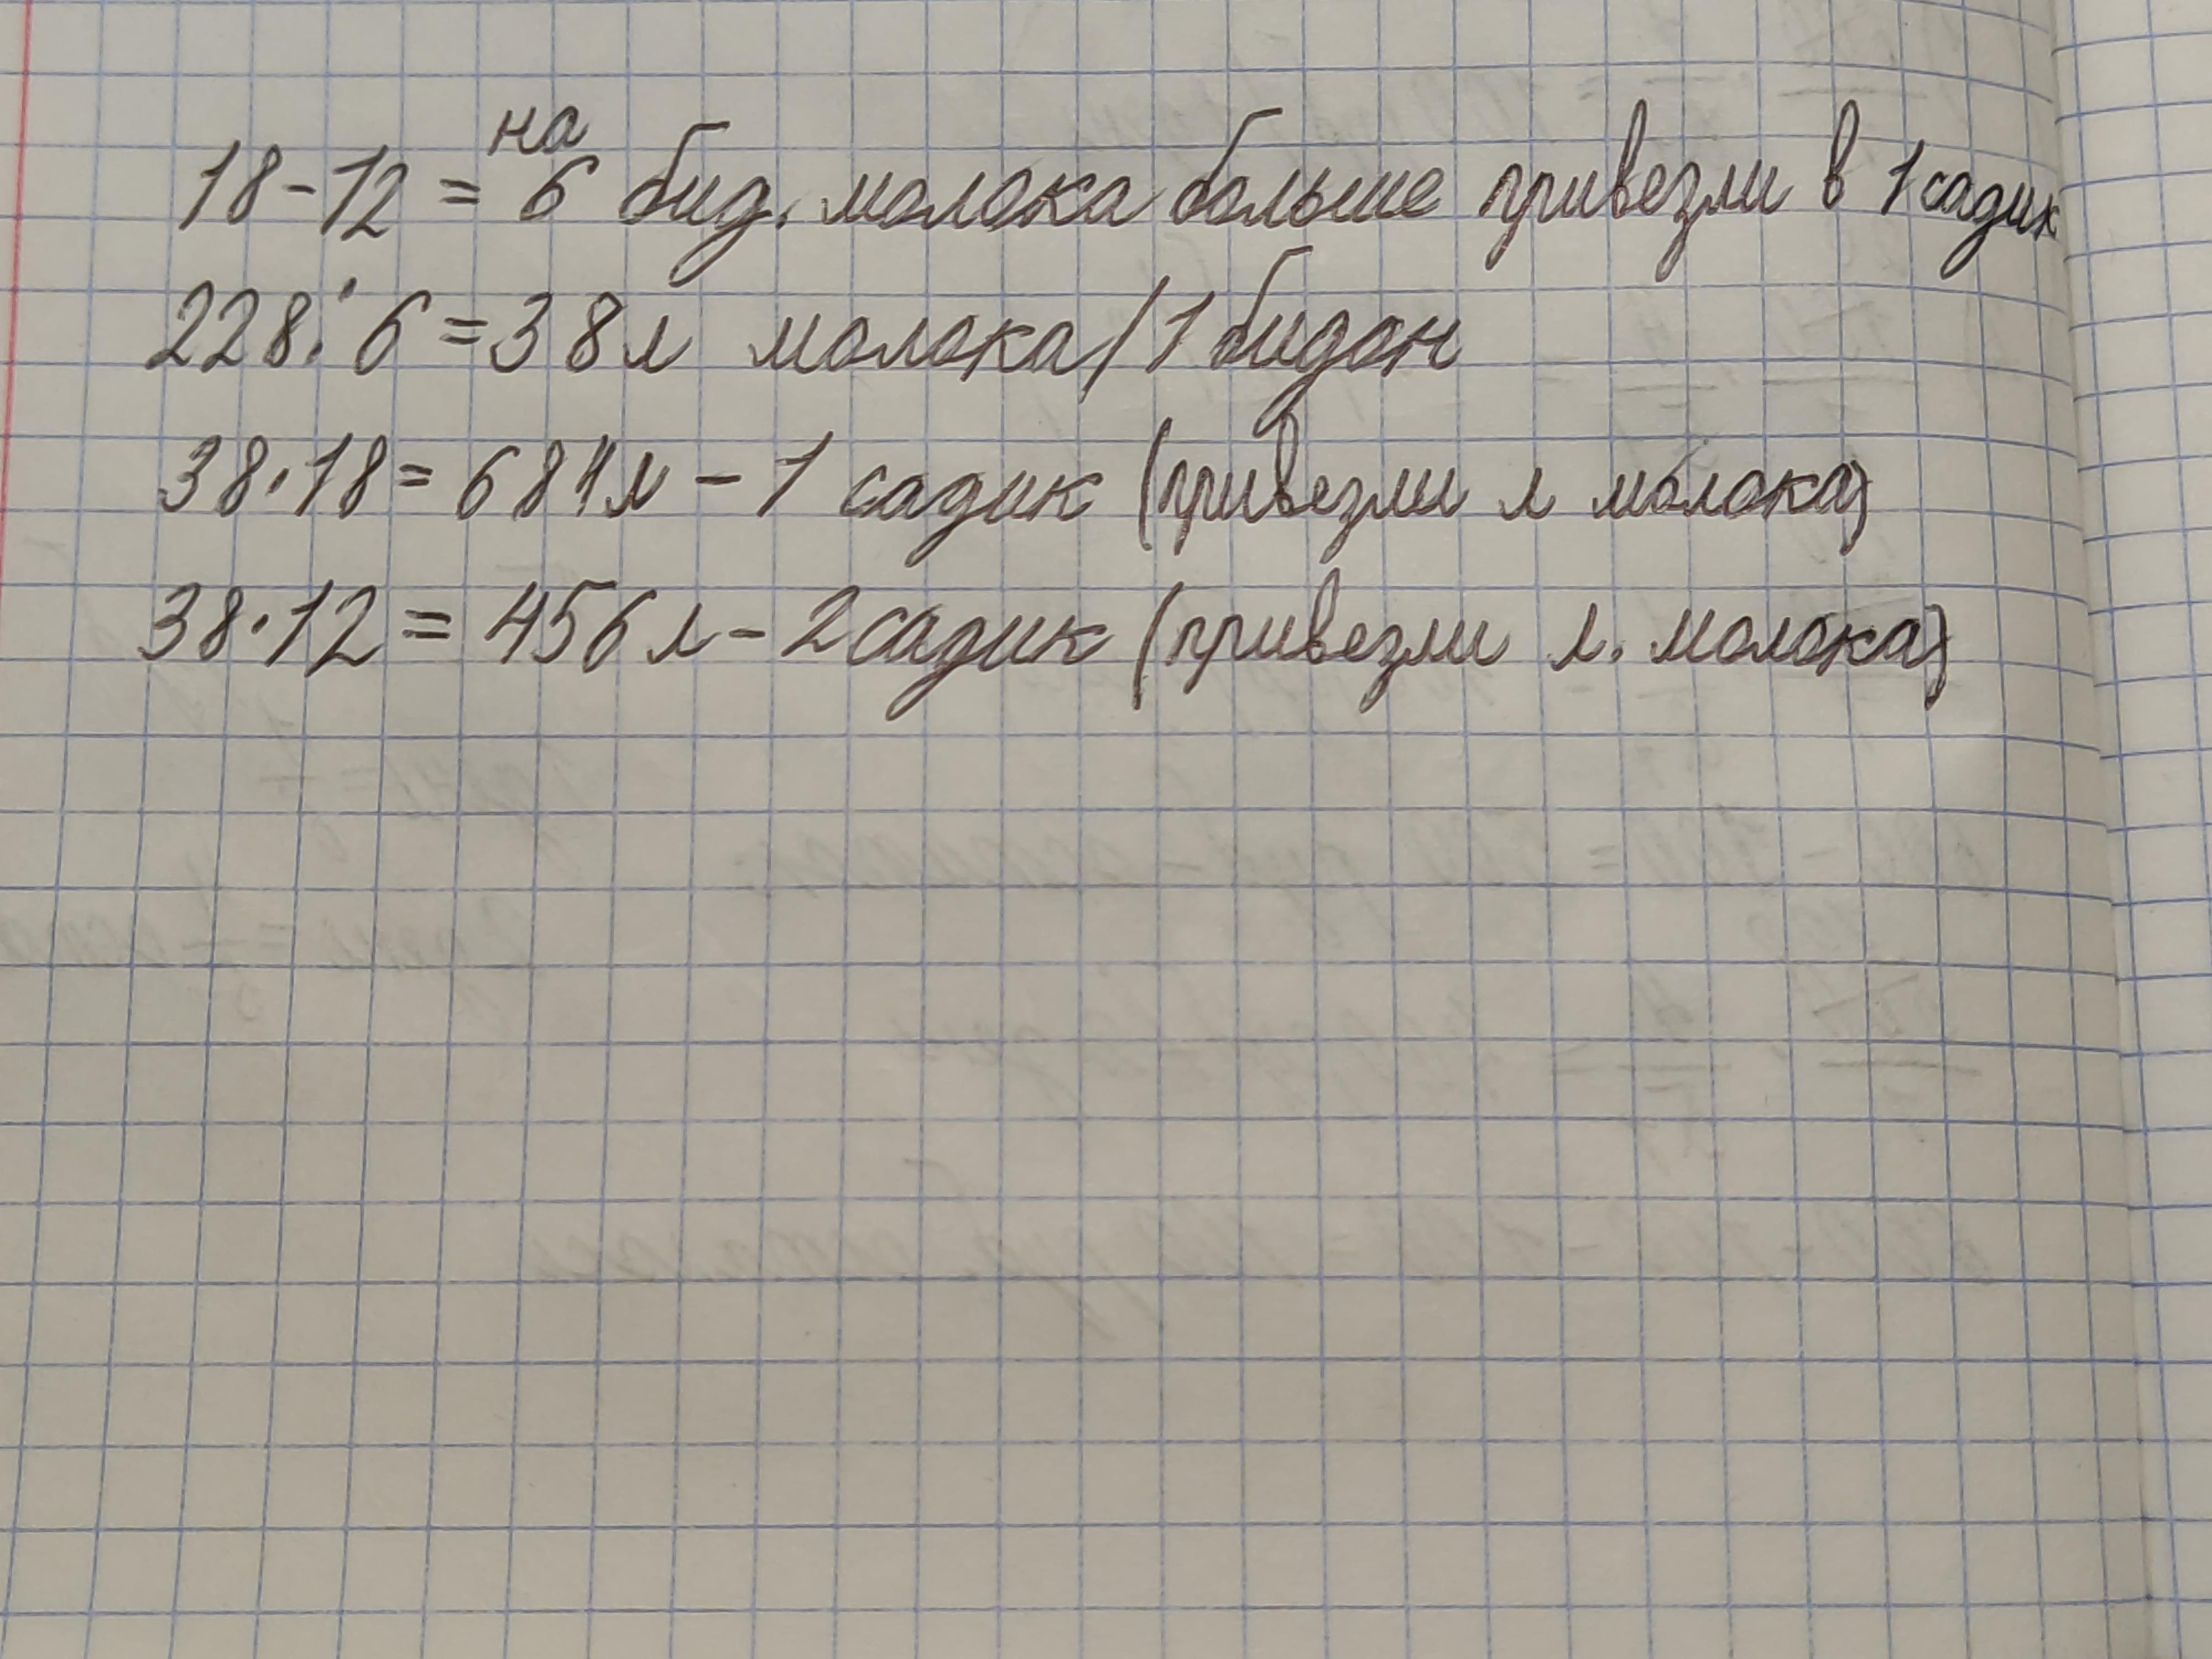 на
18-12 = 6 бид. молока больше привезли в 1 садик
228:6=38л молока/1 бидон
38·18=684л-1 садик (привезли л молока)
38·12=456л-2 садик (привезли л. молока)